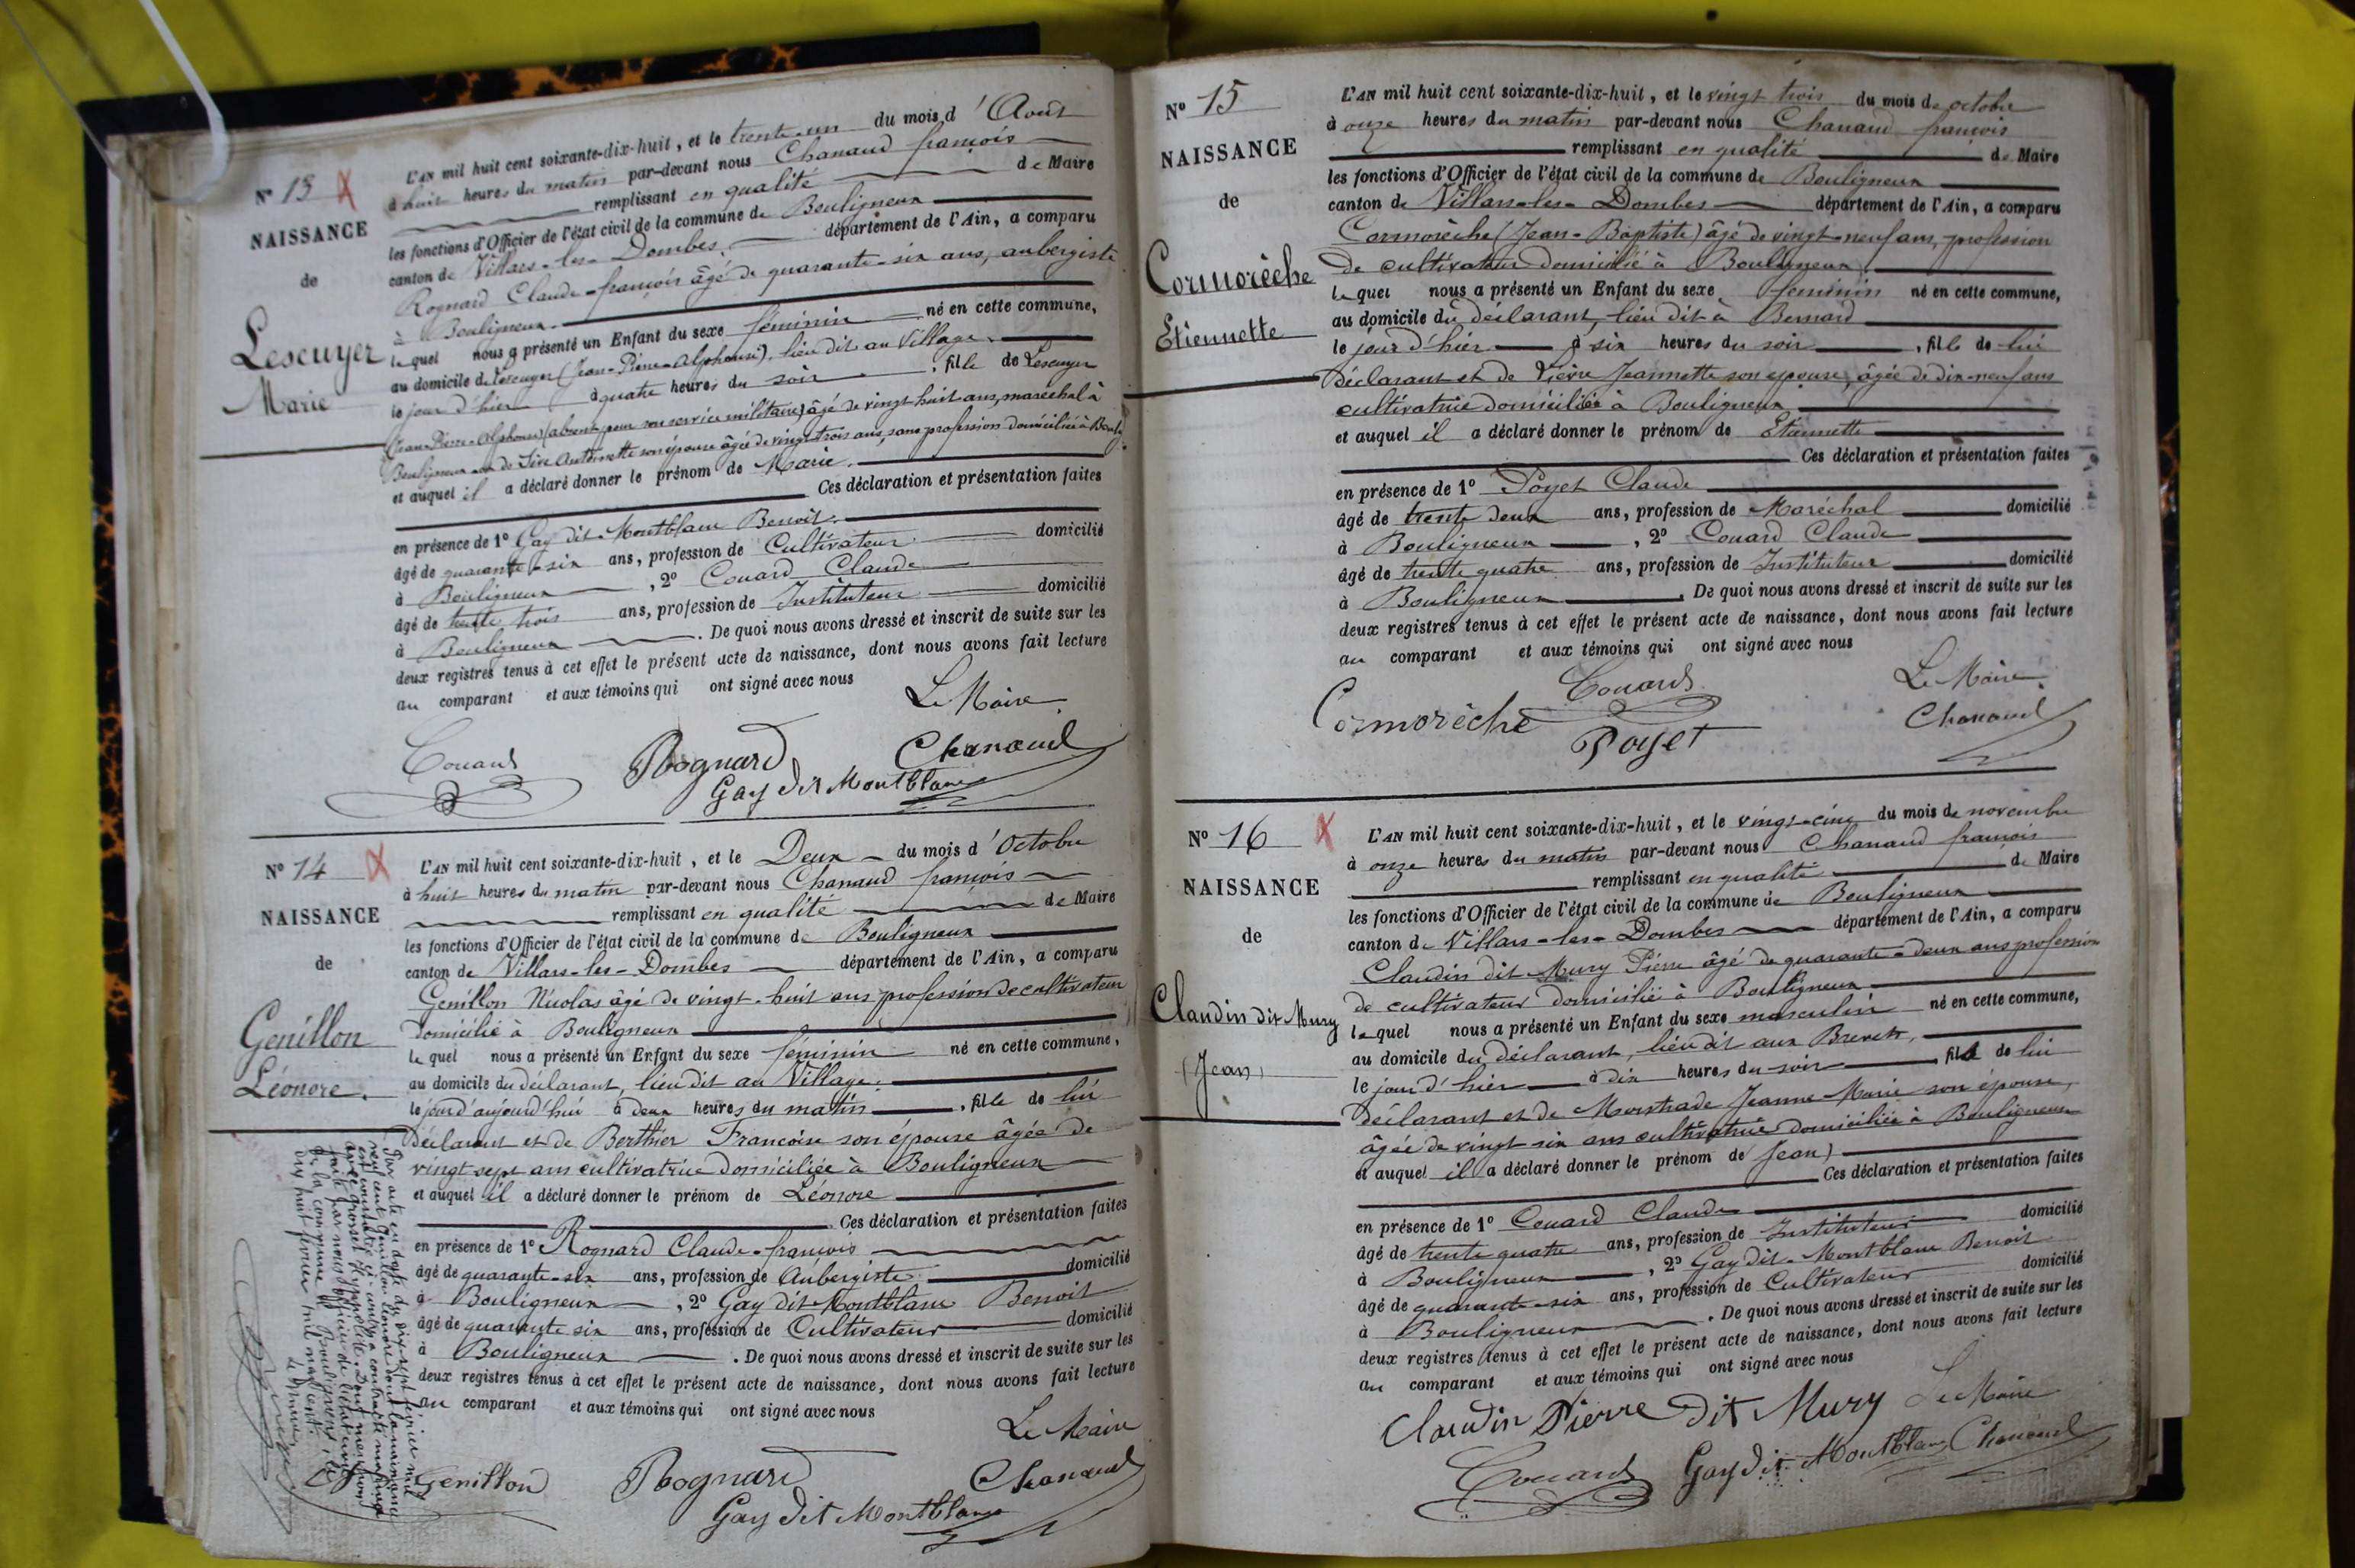 N° 13
NAISSANCE
de
Lescuyer
Marie
L'AN mil huit cent soixante-dix-huit, et le trente-un du mois d'Août
à huit heures du matin par-devant nous Chanaud françois
remplissant en qualité de Maire
les fonctions d'Officier de l'état civil de la commune de Bouligneux
canton de Villars-les-Dombes département de l'Ain, a comparu
Rognard Claude-françois âgé de quarante-six ans, aubergiste
à Bouligneux
lequel nous a présenté un Enfant du sexe féminin né en cette commune,
au domicile de Lescuyer (Jean-Pierre-Alphonse), lieu dit au Village
le jour d'hier à quatre heures du soir, fille de Lescuyer
(Jean-Pierre-Alphonse) absent pour son service militaire, âgé de vingt huit ans, maréchal à
Bouligneux et de Antoinette son épouse âgée de vingt trois ans, sans profession domiciliée à
et auquel il a déclaré donner le prénom de Marie.
Ces déclaration et présentation faites
en présence de 1° Gay dit Montblanc Benoit
âgé de quarante-six ans, profession de Cultivateur domicilié
à Bouligneux, 2° Couard Claude
âgé de trente trois ans, profession de Instituteur domicilié
à Bouligneux. De quoi nous avons dressé et inscrit de suite sur les
deux registres tenus à cet effet le présent acte de naissance, dont nous avons fait lecture
au comparant et aux témoins qui ont signé avec nous
Le Maire
Couard Rognard Chanaud
Gay dit Montblanc
N° 14
NAISSANCE
de
Genillon
Léonore.
L'AN mil huit cent soixante-dix-huit, et le Deux du mois d'Octobre
à huit heures du matin par-devant nous Chanaud françois
remplissant en qualité de Maire
les fonctions d'Officier de l'état civil de la commune de Bouligneux
canton de Villars-les-Dombes département de l'Ain, a comparu
Genillon Nicolas âgé de vingt-huit ans profession de cultivateur
domicilié à Bouligneux
lequel nous a présenté un Enfant du sexe féminin né en cette commune,
au domicile du déclarant, lieu dit au Village
le jour d'aujourd'hui à deux heures du matin, fille de lui
déclarant et de Berthier Françoise son épouse âgée de
vingt sept ans cultivatrice domiciliée à Bouligneux
et auquel il a déclaré donner le prénom de Léonore
Ces déclaration et présentation faites
en présence de 1° Rognard Claude-françois
âgé de quarante-six ans, profession de Aubergiste domicilié
à Bouligneux, 2° Gay dit Montblanc Benoit
âgé de quarante six ans, profession de Cultivateur domicilié
à Bouligneux. De quoi nous avons dressé et inscrit de suite sur les
deux registres tenus à cet effet le présent acte de naissance, dont nous avons fait lecture
au comparant et aux témoins qui ont signé avec nous
Le Maire
Genillon Rognard Chanaud
Gay dit Montblanc
Par acte en date du dix sept février mil
neuf cent Genillon Léonore dont la naissance
est constatée ci-contre a contracté mariage
avec Grosset Hyppolite. Dont mention
faite par nous officier de l'état civil
de la commune de Bouligneux, le
dix huit février mil neuf cent.
Le Maire
N° 15
NAISSANCE
de
Cormorèche
Etiennette
L'AN mil huit cent soixante-dix-huit, et le vingt trois du mois de octobre
à onze heures du matin par-devant nous Chanaud françois
remplissant en qualité de Maire
les fonctions d'Officier de l'état civil de la commune de Bouligneux
canton de Villars-les-Dombes département de l'Ain, a comparu
Cormorèche (Jean-Baptiste) âgé de vingt-neuf ans, profession
de cultivateur domicilié à Bouligneux
lequel nous a présenté un Enfant du sexe féminin né en cette commune,
au domicile du déclarant, lieu dit à Bernard
le jour d'hier à six heures du soir, fille de lui
déclarant et de Jeannette son épouse, âgée de dix-neuf ans
cultivatrice domiciliée à Bouligneux
et auquel il a déclaré donner le prénom de Etiennette
Ces déclaration et présentation faites
en présence de 1° Poyet Claude
âgé de trente deux ans, profession de Maréchal domicilié
à Bouligneux, 2° Couard Claude
âgé de trente quatre ans, profession de Instituteur domicilié
à Bouligneux. De quoi nous avons dressé et inscrit de suite sur les
deux registres tenus à cet effet le présent acte de naissance, dont nous avons fait lecture
au comparant et aux témoins qui ont signé avec nous
Couard Le Maire
Cormorèche Chanaud
Poyet
N° 16
NAISSANCE
de
Claudin dit Mury
(Jean)
L'AN mil huit cent soixante-dix-huit, et le vingt-cinq du mois de novembre
à onze heures du matin par-devant nous Chanaud françois
remplissant en qualité de Maire
les fonctions d'Officier de l'état civil de la commune de Bouligneux
canton de Villars-les-Dombes département de l'Ain, a comparu
Claudin dit Mury Pierre âgé de quarante-deux ans profession
de cultivateur domicilié à Bouligneux
lequel nous a présenté un Enfant du sexe masculin né en cette commune,
au domicile du déclarant, lieu dit aux
le jour d'hier à dix heures du soir, fils de lui
déclarant et de Jeanne Marie son épouse,
âgée de vingt six ans cultivatrice domiciliée à Bouligneux
et auquel il a déclaré donner le prénom de Jean)
Ces déclaration et présentation faites
en présence de 1° Couard Claude
âgé de trente quatre ans, profession de Instituteur domicilié
à Bouligneux, 2° Gay dit Montblanc Benoit
âgé de quarante-six ans, profession de Cultivateur domicilié
à Bouligneux. De quoi nous avons dressé et inscrit de suite sur les
deux registres tenus à cet effet le présent acte de naissance, dont nous avons fait lecture
au comparant et aux témoins qui ont signé avec nous
Claudin Pierre dit Mury Le Maire
Couard Gay dit Montblanc Chanaud